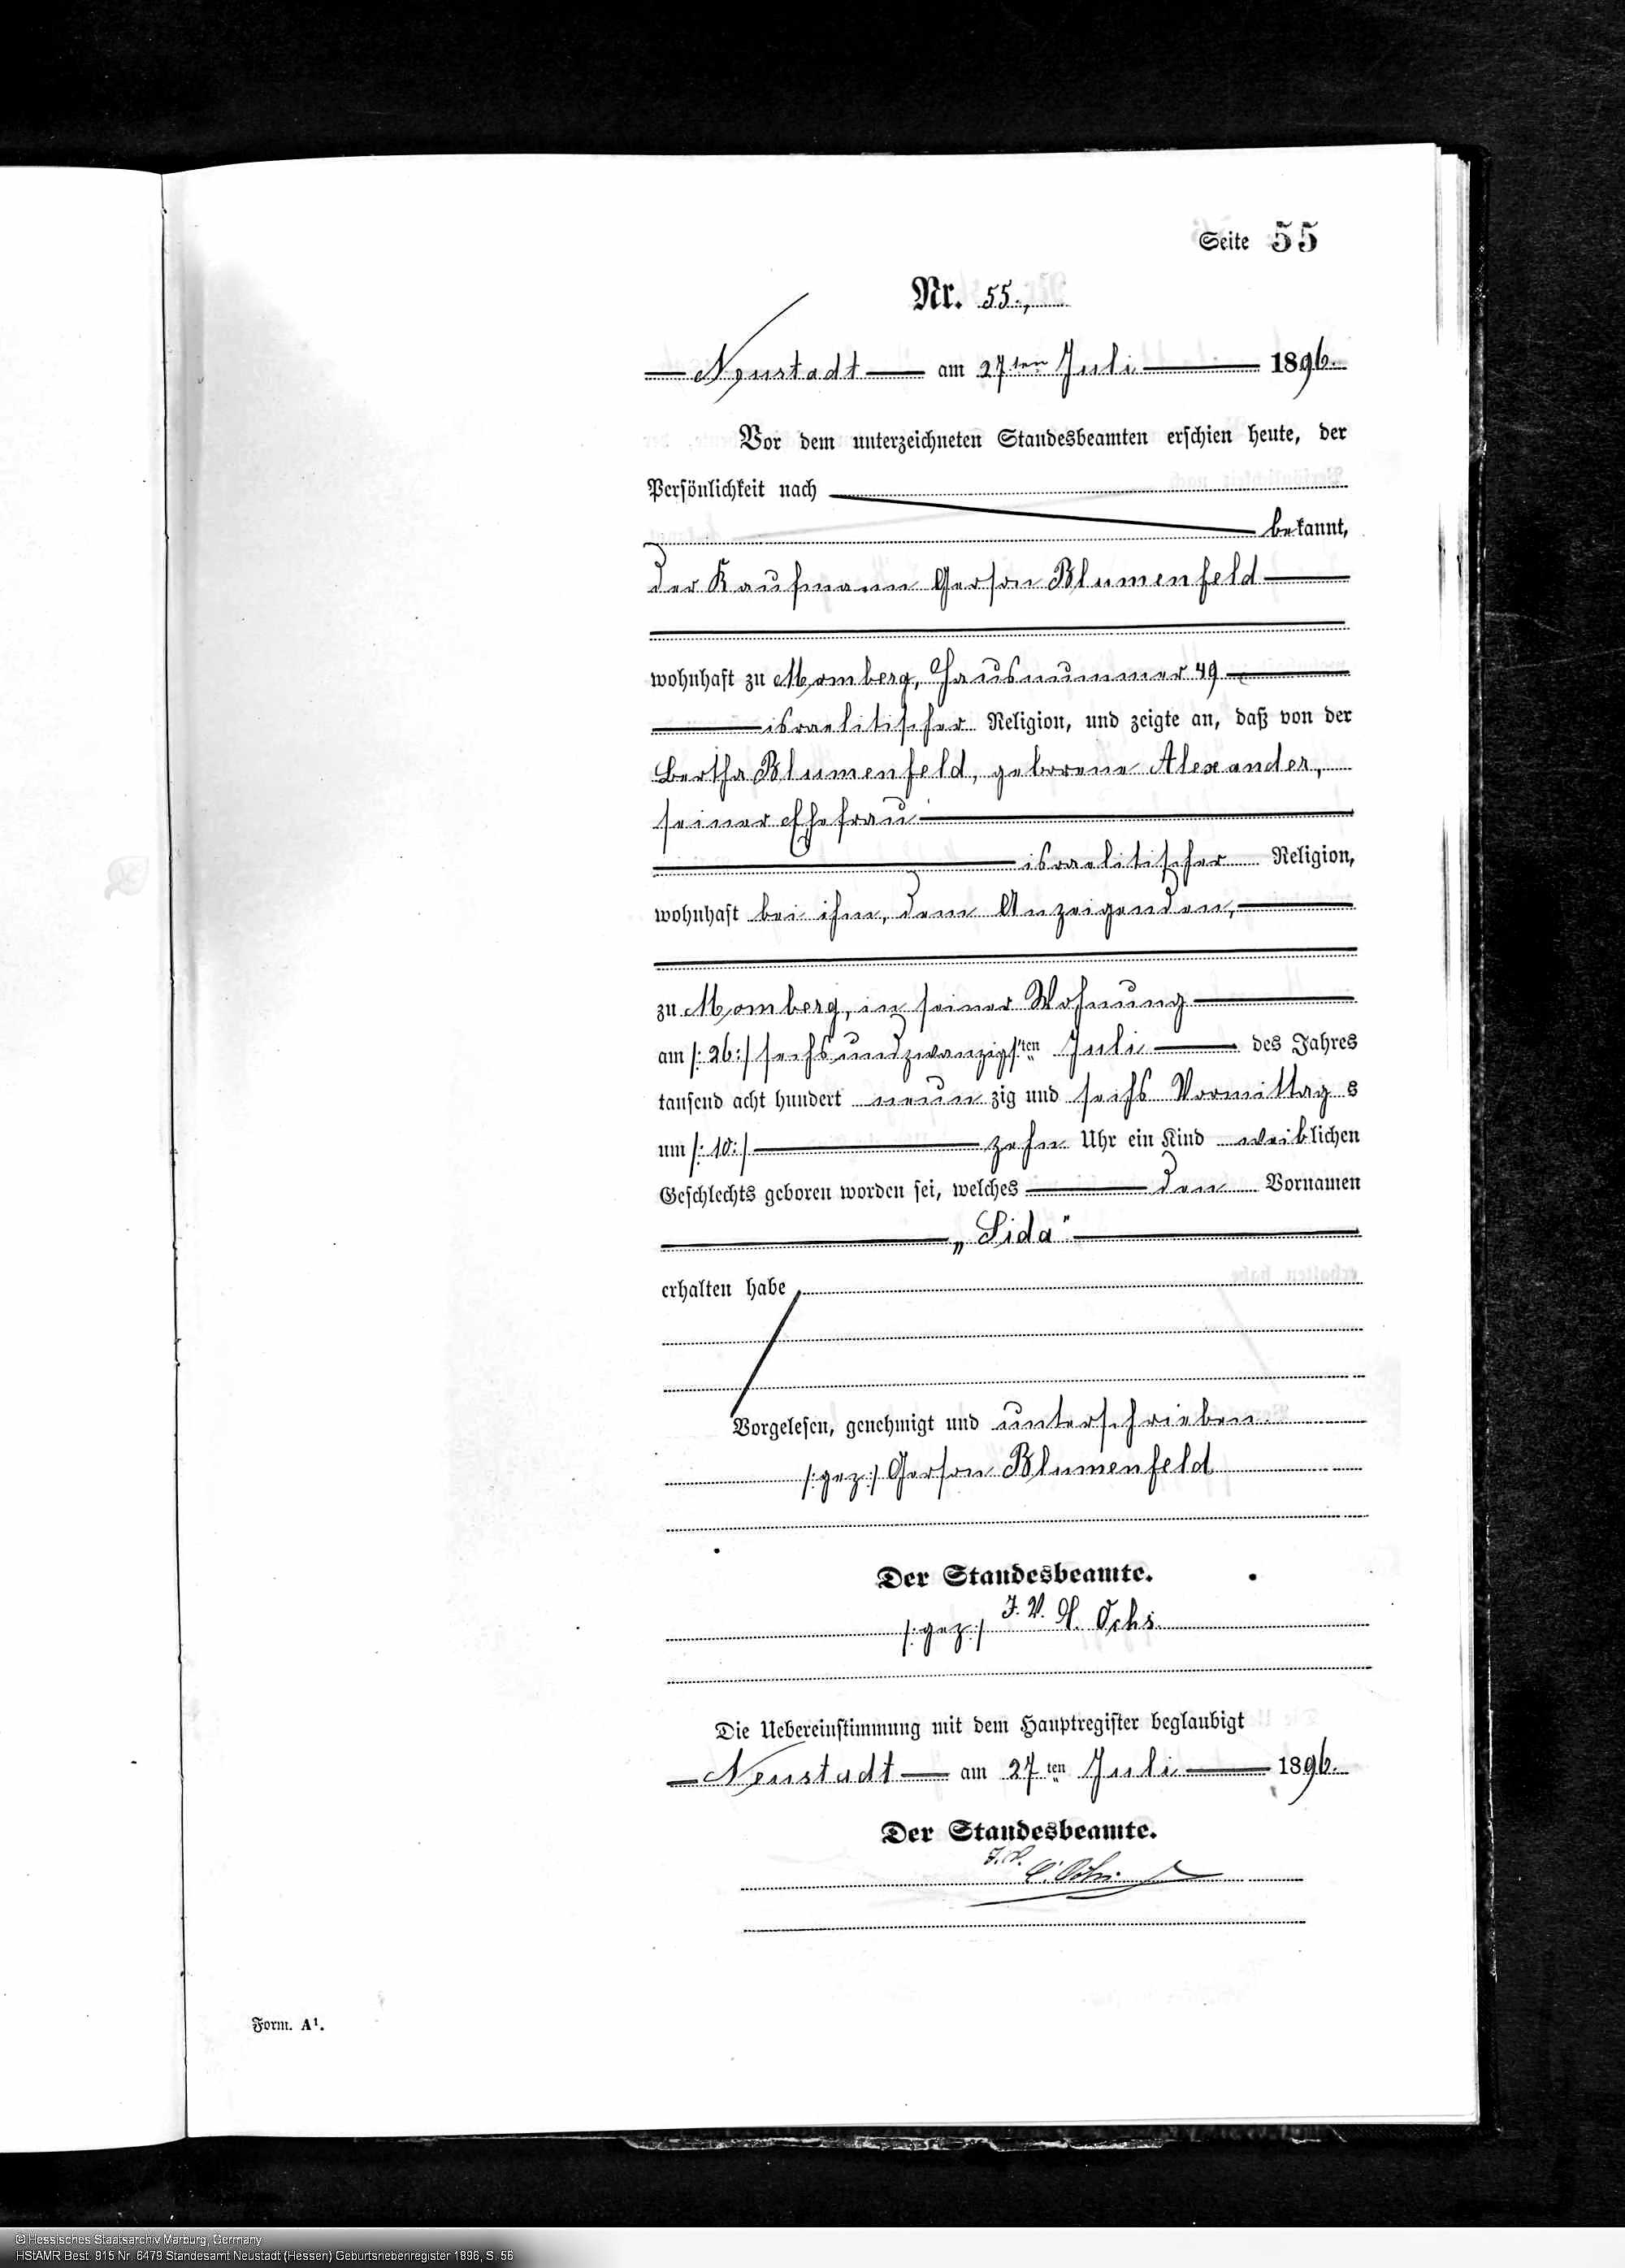 Seite 55
Nr. 55.,
Neustadt am 27ten Juli 1896.
Vor dem unterzeichneten Standesbeamten erschien heute, der
Persönlichkeit nach
bekannt,
der Kaufmann Gerson Blumenfeld
wohnhaft zu Momberg, Hausnummer 49
israelitischer Religion, und zeigte an, daß von der
Bertha Blumenfeld, geborene Alexander,
seiner Ehefrau
israelitischer Religion,
wohnhaft bei ihm, dem Anzeigenden,
zu Momberg, in seiner Wohnung
am /: 26 :/ sechsundzwanzigsten Juli des Jahres
tausend acht hundert neunzig und sechs Vormittags
um /: 10 :/ zehn Uhr ein Kind weiblichen
Geschlechts geboren worden sei, welches den Vornamen
„Sida"
erhalten habe
Vorgelesen, genehmigt und unterschrieben.
/: gez :/ Gerson Blumenfeld
Der Standesbeamte.
/: gez :/ J. V. Ochs
Die Uebereinstimmung mit dem Hauptregister beglaubigt
Neustadt am 27ten Juli 1896.
Der Standesbeamte.
J. V.
Form. A1.
© Hessisches Staatsarchiv Marburg, Germany
HStAMR Best. 915 Nr. 6479 Standesamt Neustadt (Hessen) Geburtsnebenregister 1896, S. 56